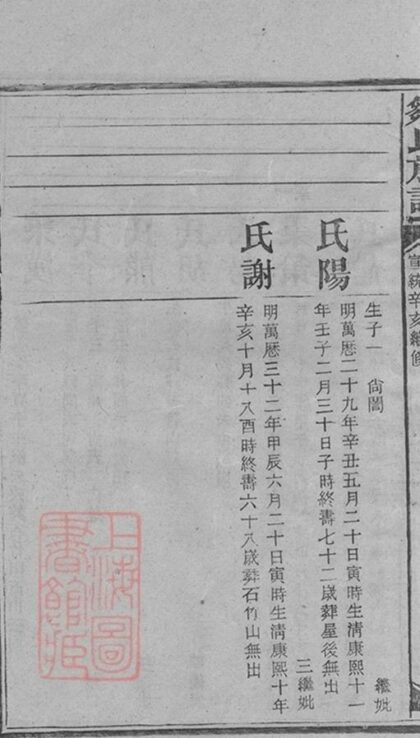 氏族譜
宣統辛亥續修
生子一 尚誾 繼妣
氏陽
明萬曆二十九年辛丑五月二十日寅時生清康熙十一
年壬子二月三十日子時終壽七十二歲葬屋後無出
三繼妣
氏謝
明萬曆三十二年甲辰六月二十日寅時生清康熙十年
辛亥十月十八酉時終壽六十八歲葬石竹山無出
上海圖
書館藏